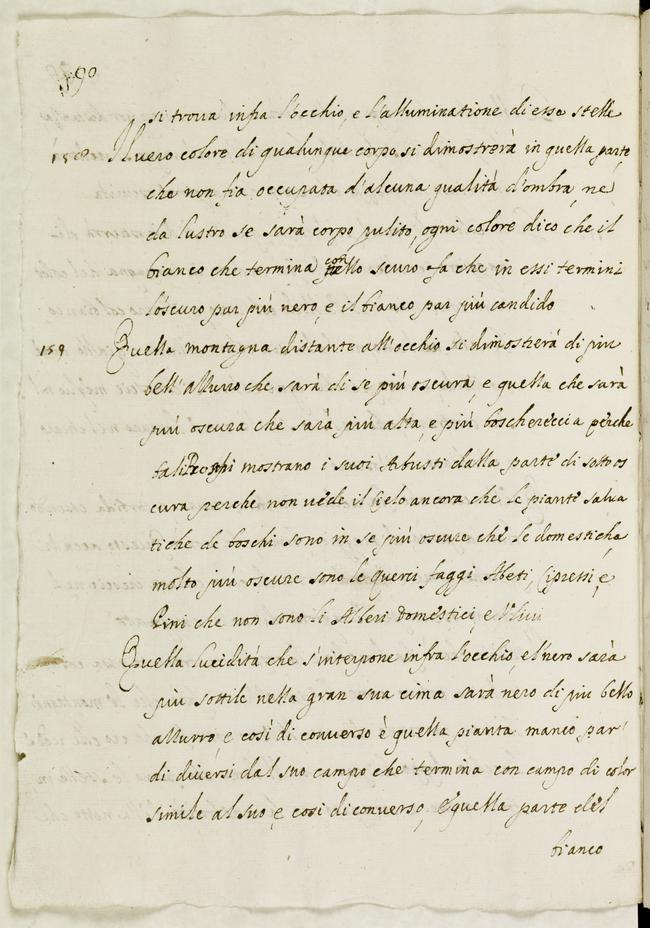 190
si troua infra l'occhio, e l'alluminatione di esse stelle
158 Il uero colore di qualunque corpo, si dimostrerà in quella parte,
che non fia occupata d'alcuna qualità d'ombra, né
da lustro se sarà corpo pulito, ogni colore dico che il
bianco che termina con lo scuro fa che in essi termini
l'oscuro par più nero, e il bianco par più candido
159 Quella montagna distante all'occhio si dimostrerà di piu
bell'azzurro che sarà di se più oscura, e quella che sarà
più oscura che sarà più alta, e più boschereccia perche
tali Boschi mostrano i suoi Arbusti dalla parte di sotto os
cura perche non uede il Cielo ancora che le piante salua
tiche de boschi sono in se più oscure che le domestiche
molto più oscure sono le querci faggi Abeti, Cipressi e
Pini che non sono li Alberi domestici, e Uliui
Quella lucidità che s'interpone infra l'occhio, e'l nero sarà
più sottile nella gran sua cima sarà nero di piu bello
azzurro, e così di conuerso è quella pianta manco par
di diuersi dal suo campo che termina con campo di color
simile al suo, e cosi di conuerso, e quella parte del
bianco